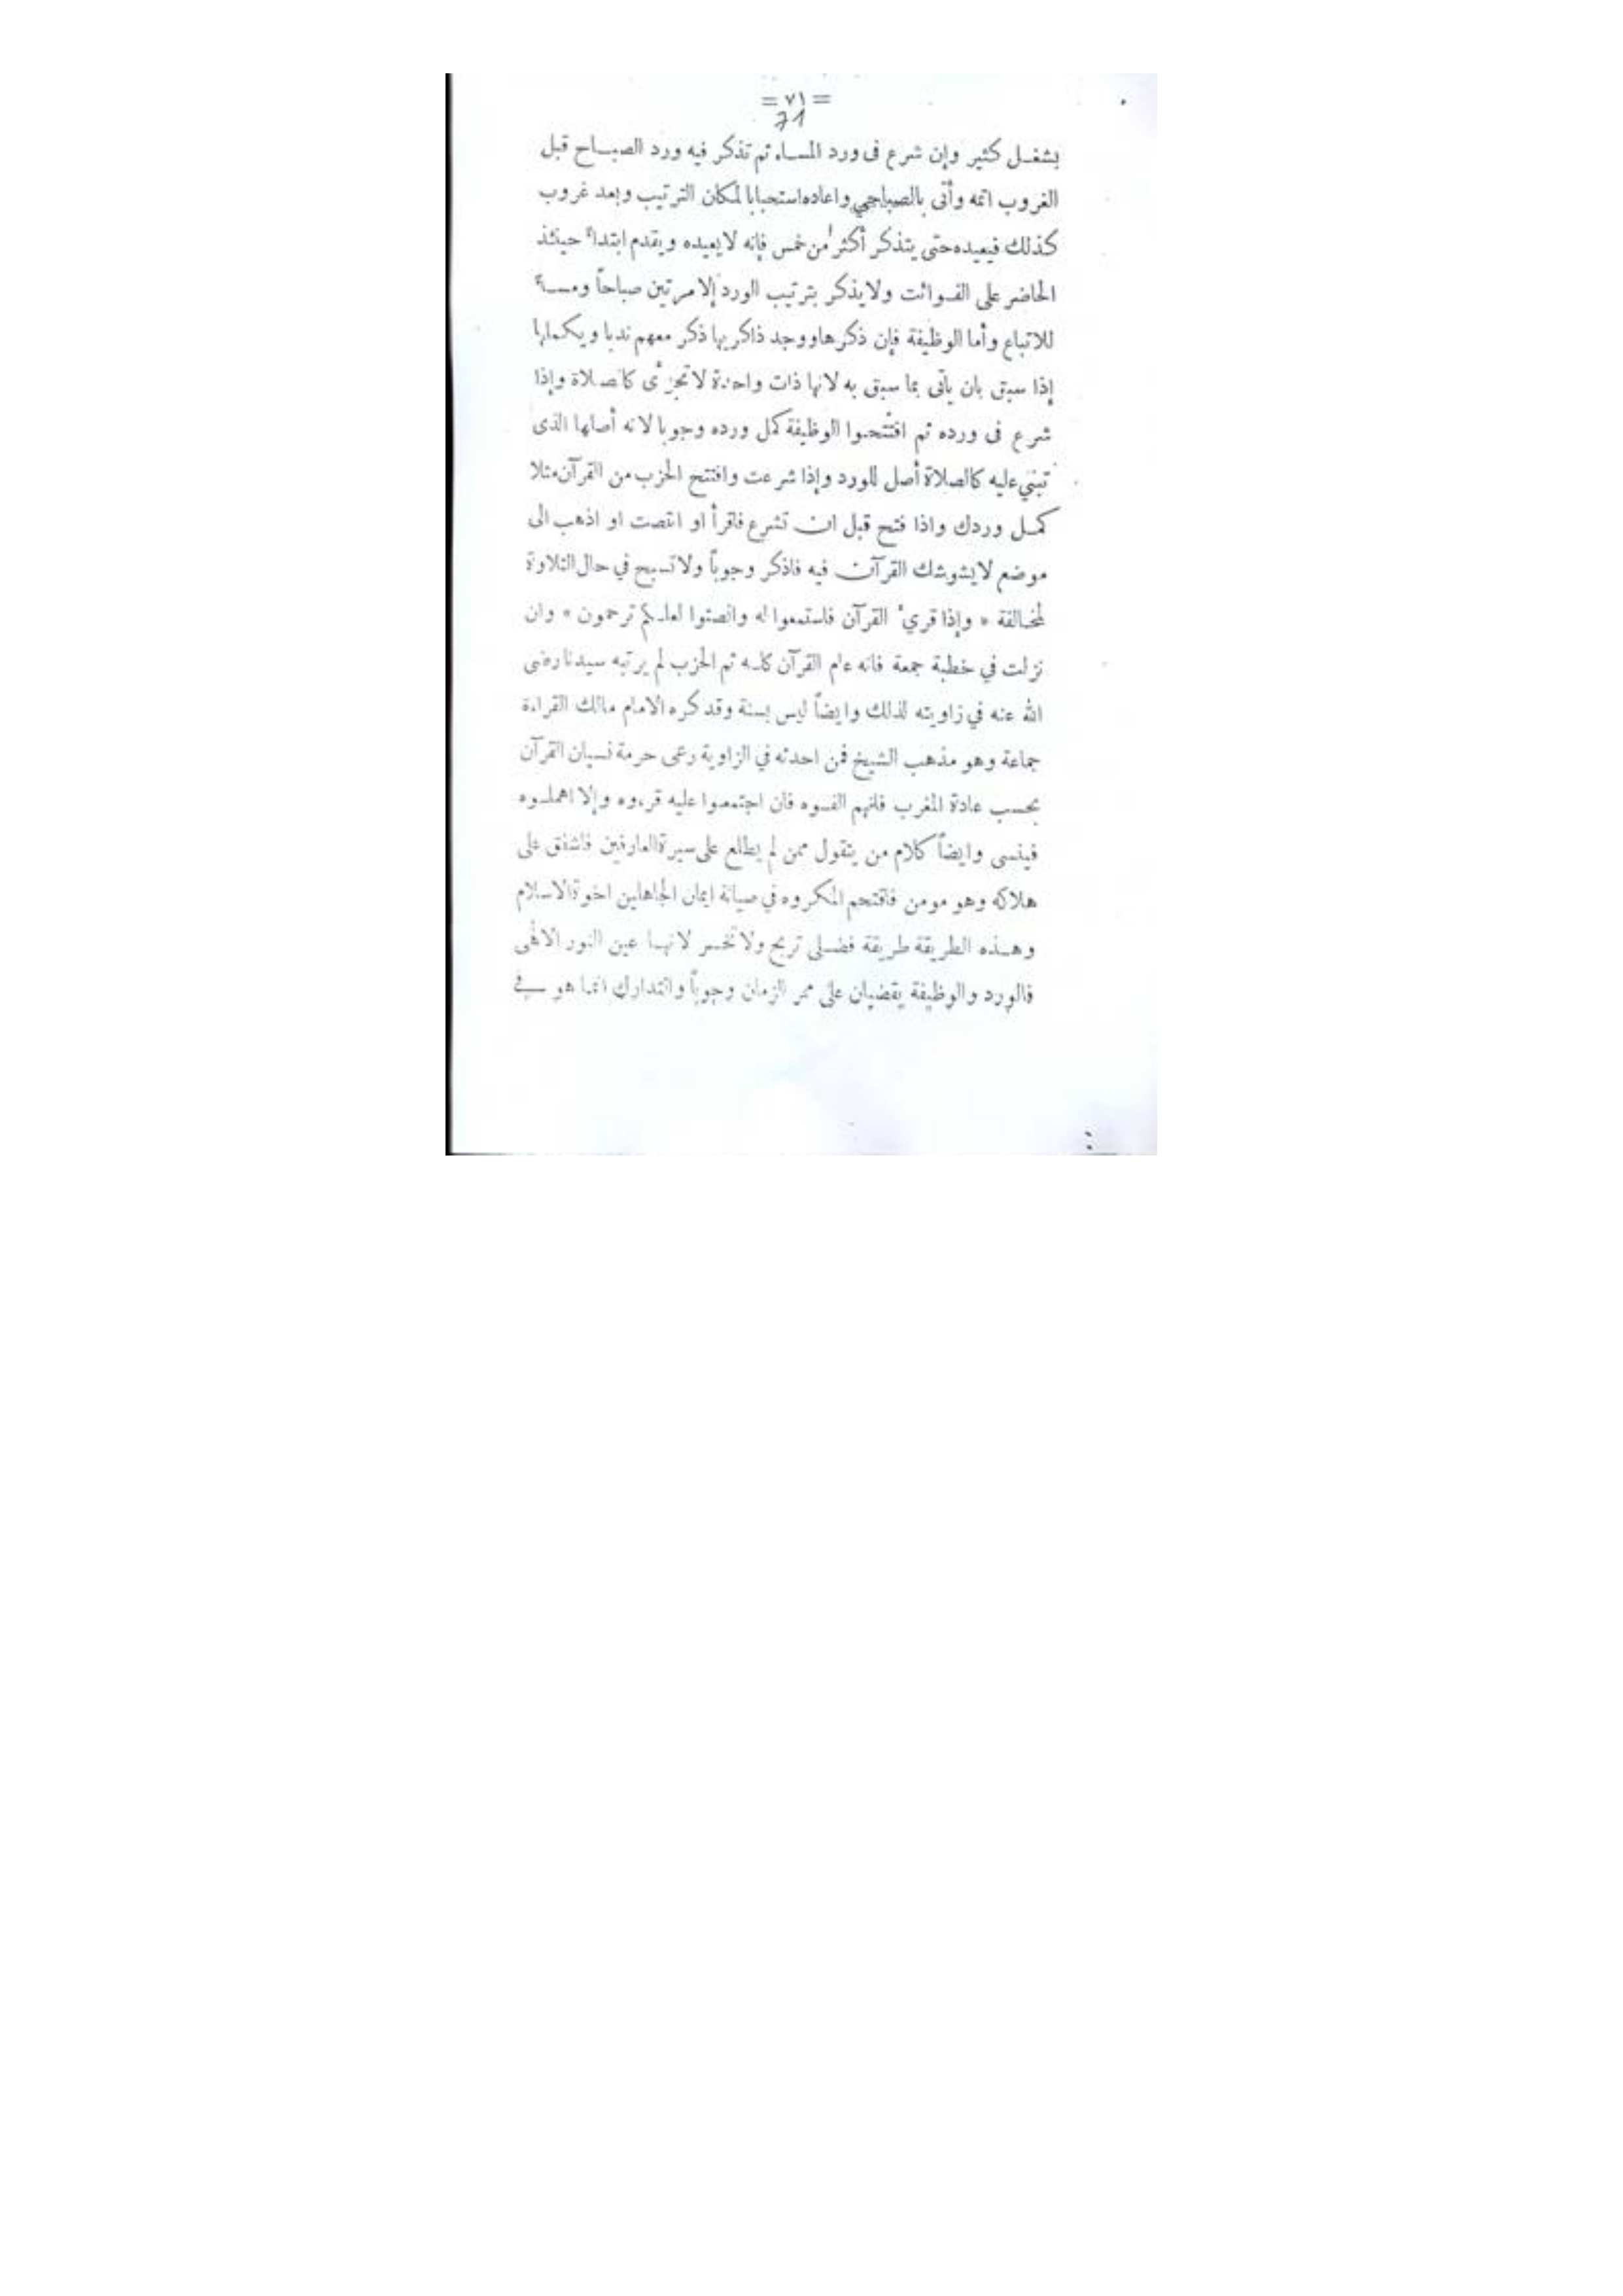 = ٧١ =
71
بشغـل كثير وإن شرع فى ورد المسـاء ثم تذكر فيه ورد الصبـاح قبل
الغروب اتمه وأتى بالصباحي واعاده استحبابا لمكان الترتيب وبعد غروب
كذلك فيعيده حتى يتذكر أكثر من خمس فإنه لايعيده ويقدم ابتداءً حينئذ
الحاضر على الفوائت ولايذكر بترتيب الورد إلا مرتين صباحاً ومساءً
للاتباع وأما الوظيفة فإن ذكرها ووجد ذاكريها ذكر معهم ندبا ويكملها
إذا سبق بان يأتى بما سبق به لانها ذات واحدة لاتجزأ ى كالصلاة وإذا
شرع فى ورده ثم افتتحوا الوظيفة كمل ورده وجوبا لانه أصلها الذى
تبنى عليه كالصلاة أصل للورد وإذا شرعت وافتتح الحزب من القرآن مثلا
كمـل وردك واذا فتح قبل ان تشرع فاقرأ او انتصت او اذهب الى
موضع لايشوشك القرآن فيه فاذكر وجوباً ولاتسبح في حال التلاوة
لمخالفة « وإذا قريء القرآن فاستمعوا له وانصتوا لعلـكم ترحمون » وان
نزلت في خطبة جمعة فانه عام القرآن كلـه ثم الحزب لم يرتبه سيدنا رضى
الله عنه في زاويته لذلك وايضاً ليس بسنة وقد كره الامام مالك القراءة
جماعة وهو مذهب الشيخ فمن احدثه في الزاوية رعى حرمة نسيان القرآن
بحسب عادة المغرب فانهم الفـوه فان اجتمعوا عليه قرءوه وإلا اهملـوه
فينسى وايضاً كلام من يتقول ممن لم يطلع على سيرة العارفين فاشفق على
هلاكه وهو مومن فاقتحم المكروه في صيانة ايمان الجاهلين اخوة الاسلام
وهـذه الطريقة طريقة فضـلى تربح ولاتخسر لانهـا عين النور الالهى
فالورد والوظيفة يقضيان على ممر الزمان وجوباً والتدارك انما هو في